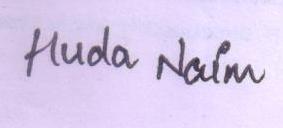 Huda Naim